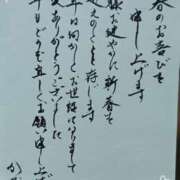 春のお喜びを
申し上げます
様お健やかに新春を
迎えのことと存じます
年は何かとお世話になりまして
ありがとうございました
年もどうぞ宜しくお願い申し上げ